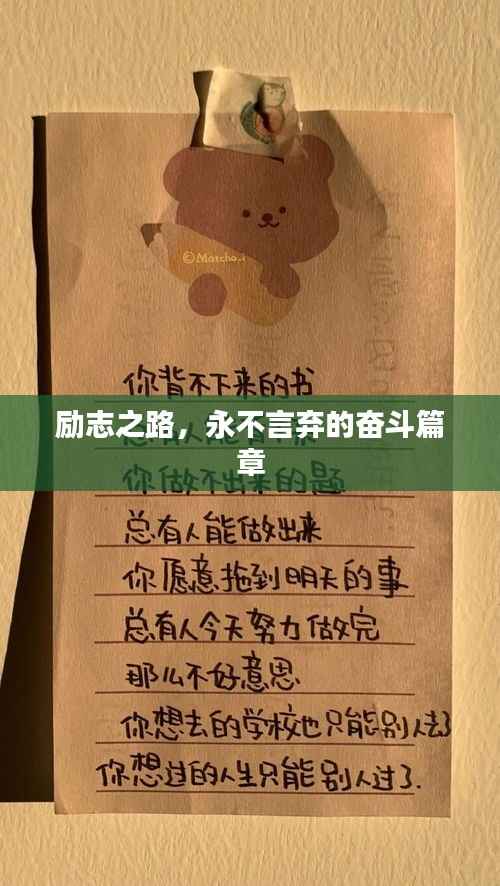 ©Matcha.i
你背不下来的书
励志之路，永不言弃的奋斗篇
章
你做不出来的题
总有人能做出来
你愿意拖到明天的事
总有人今天努力做完
那么不好意思
你想去的学校也只能别人去了
你想过的人生只能别人过了.